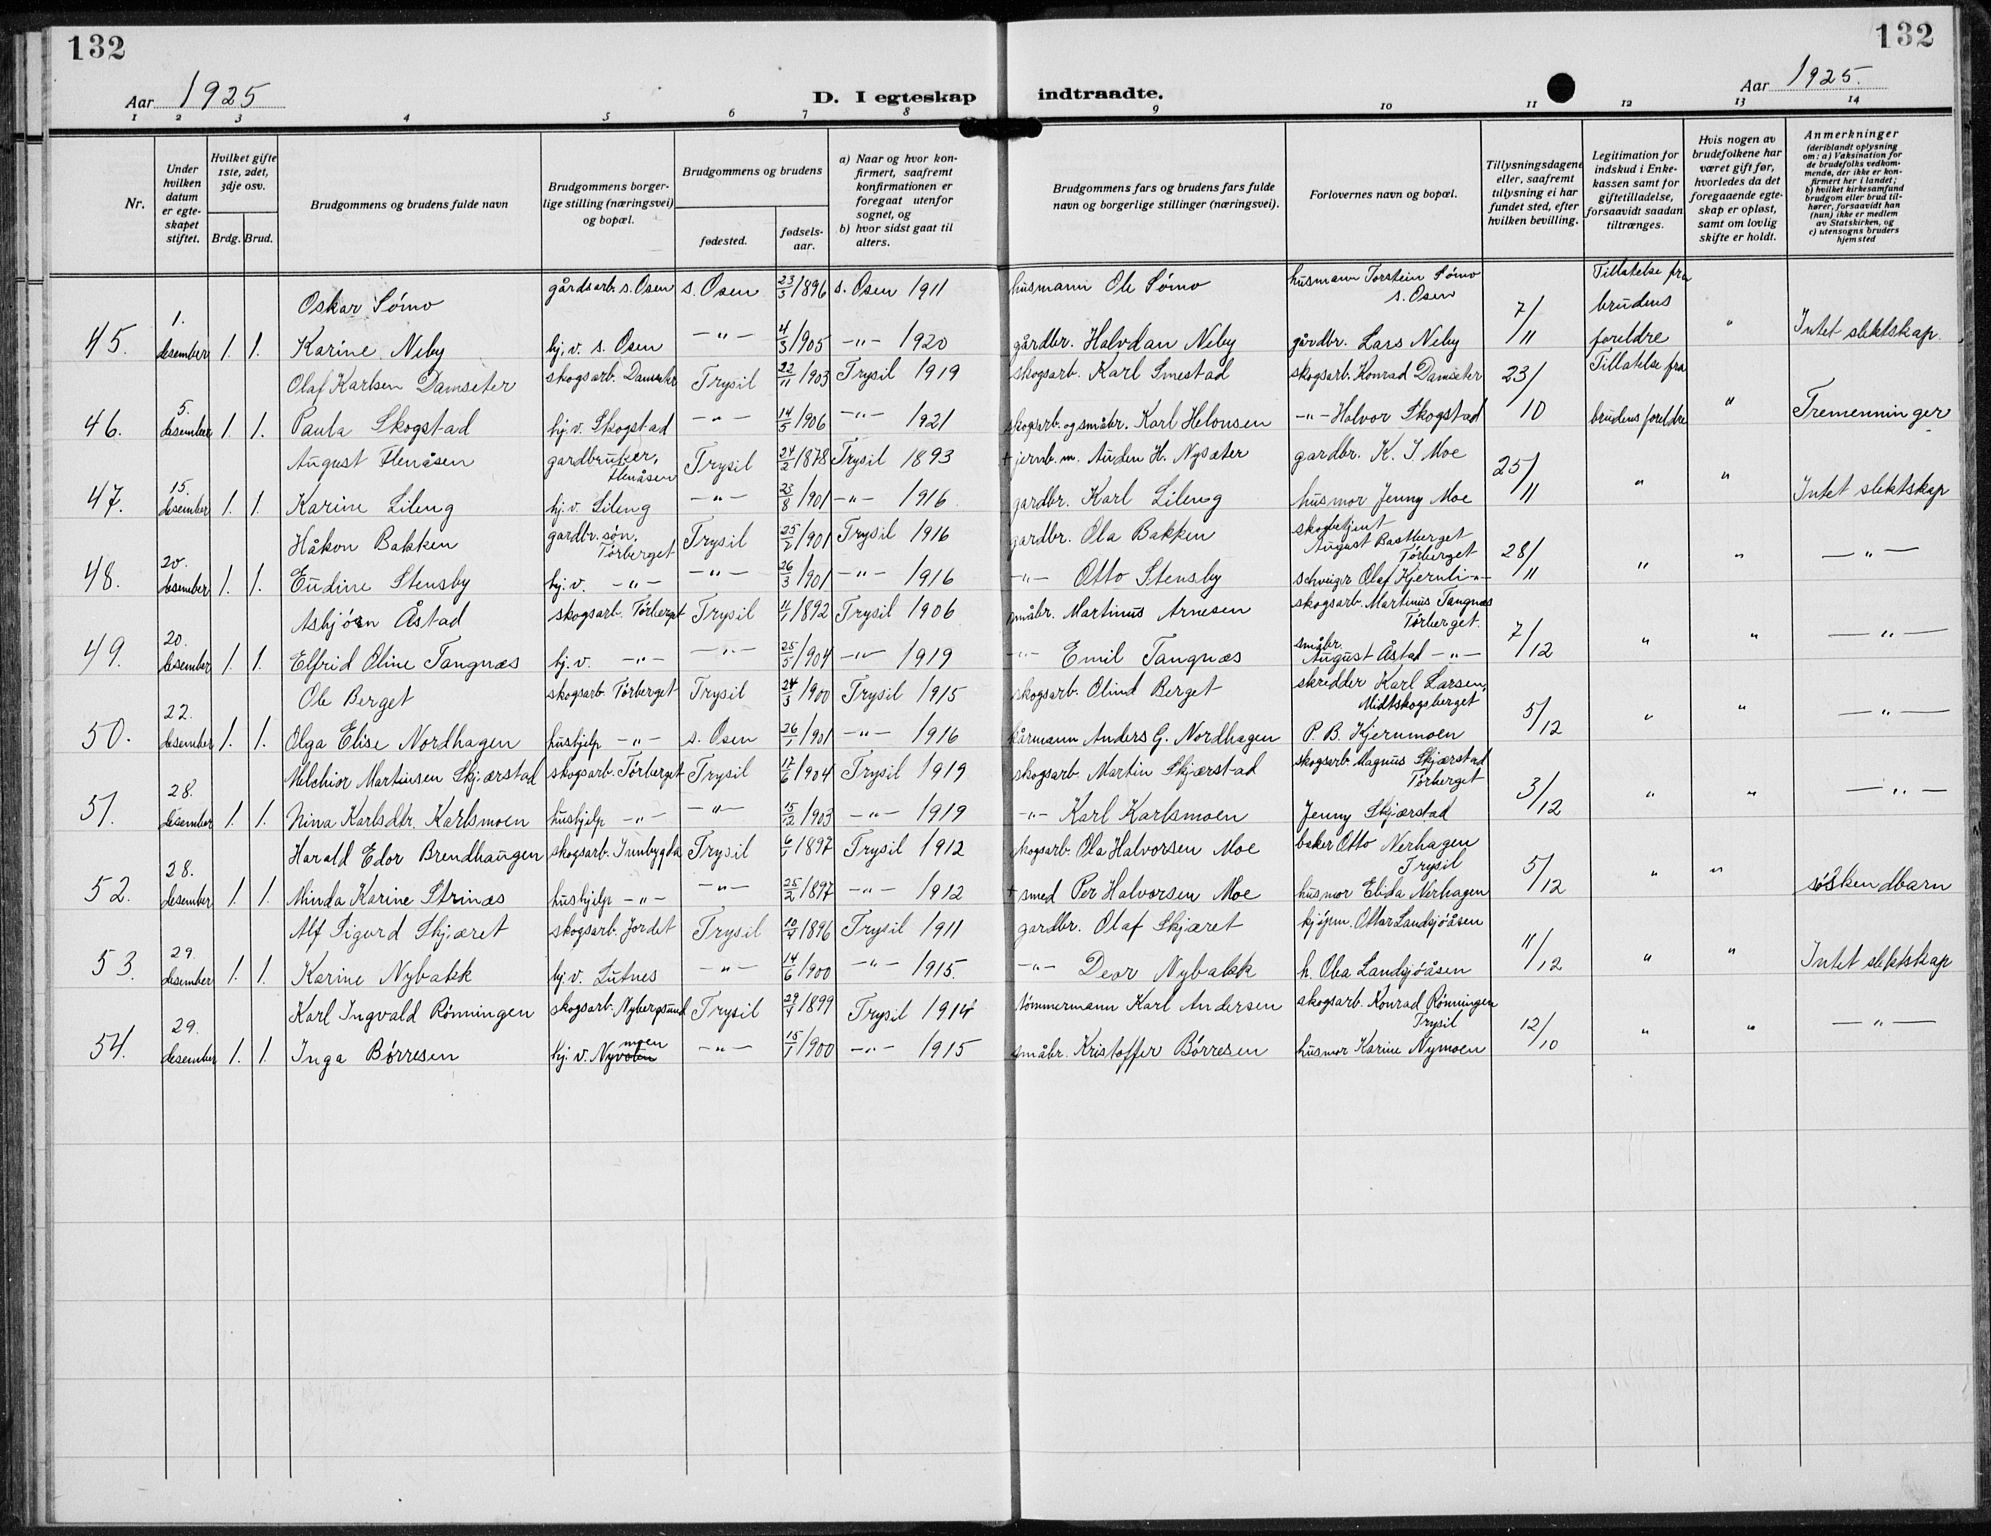 132
132
Aar 1925
D. I egteskap indtraadte.
Aar 1925.
1 2 3 4 5 6 7 8 9 10 11 12 13 14
Nr.
Under hvilken datum er egteskapet stiftet.
Hvilket gifte 1ste, 2det, 3dje osv.
Brdg. Brud.
Brudgommens og brudens fulde navn
Brudgommens borgerlige stilling (næringsvei) og bopæl.
Brudgommens og brudens
fødested.
fødselsaar.
a) Naar og hvor konfirmert, saafremt konfirmationen er foregaat utenfor sognet, og
b) hvor sidst gaat til alters.
Brudgommens fars og brudens fars fulde navn og borgerlige stillinger (næringsvei).
Forlovernes navn og bopæl.
Tillysningsdagene eller, saafremt tillysning ei har fundet sted, efter hvilken bevilling.
Legitimation for indskud i Enkekassen samt for giftetilladelse, forsaavidt saadan tiltrænges.
Hvis nogen av brudefolkene har været gift før, hvorledes da det foregaaende egteskap er opløst, samt om lovlig skifte er holdt.
Anmerkninger (deriblandt oplysning om: a) Vaksination for de brudefolks vedkommende, der ikke er konfirmert her i landet; b) hvilket kirkesamfund brudgom eller brud tilhører, forsaavidt han (hun) ikke er medlem av Statskirken, og c) utensogns bruders hjemsted
Oskar Sömo gårdsarb. s. Osen s. Osen 23/3 1896 s. Osen 1911 husmann Ole Sömo husmann Torstein Sömo s. Osen Tillatelse fra
45. 1. desember 1. 1. Karine Neby hj. v. s. Osen -"- 4/3 1905 -"- 1920 gårdbr. Halvdan Neby gårdbr. Lars Neby 7/11 brudens foreldre " Intet slektskap.
Olaf Karlsen Damseter skogsarb. Damseter Trysil 22/11 1903 Trysil 1919 skogsarb. Karl Smestad skogsarb. Konrad Damseter 23/10 Tillatelse fra
46. 5. desember 1. 1. Paula Skogstad hj. v. Skogstad -"- 14/5 1906 -"- 1921 skogsarb. og småbr. Karl Helonsen -"- Halvor Skogstad brudens foreldre " Tremenninger
August Flenåsen gardbruker, Flenåsen Trysil 24/2 1878 Trysil 1893 + jernb. m. Auden H. Nysæter gardbr. K. J Moe 25/11
47. 15. desember 1. 1. Karine Lileng hj. v. Lileng -"- 23/8 1901 -"- 1916 gardbr. Karl Lileng husmor Jenny Moe " " Intet slektskap
Håkon Bakken gardbr. søn. Törberget Trysil 25/2 1901 Trysil 1916 gardbr. Ola Bakken skogbetjent August Bastberget Törberget 28/11
48. 20. desember 1. 1. Eudine Stensby hj. v. -"- -"- 26/3 1901 -"- 1916 -"- Otto Stensby schveizer Olaf Kjernli -"- " " -"-
Asbjörn Åstad skogsarb. Törberget Trysil 11/1 1892 Trysil 1906 småbr. Martinus Arnesen skogsarb. Martinus Tangnæs Törberget. 7/12
49. 20. desember 1. 1. Elfrid Oline Tangnæs hj. v. -"- -"- 25/5 1904 -"- 1919 -"- Emil Tangnæs småbr. August Åstad -"- " " -"-
Ole Berget skogsarb. Törberget Trysil 24/3 1900 Trysil 1915 skogsarb. Olind Berget skredder Karl Larsen, Midtskogsberget 5/12
50. 22. desember 1. 1. Olga Elise Nordhagen hushjelp -"- s. Osen 26/1 1901 -"- 1916 kårmann Anders G. Nordhagen P. B. Kjernmoen " " -"-
Melchior Martinsen Skjærstad skogsarb. Törberget Trysil 17/6 1904 Trysil 1919 skogsarb. Martin Skjærstad skogsarb. Magnus Skjærstad Törberget 3/12
51. 28. desember 1. 1. Nina Karlsdtr. Karlsmoen hushjelp -"- -"- 15/12 1903 -"- 1919 -"- Karl Karlsmoen Jenny Skjærstad " " -"-
Harald Edor Brendhaugen skogsarb. Innbygda Trysil 6/1 1897 Trysil 1912 skogsarb. Ola Halvorsen Moe baker Otto Nerhagen Trysil 5/12
52. 28. desember 1. 1. Minda Karine Strinæs hushjelp -"- -"- 25/2 1897 -"- 1912 + smed Per Halvorsen Moe husmor Elida Nerhagen " " söskendbarn
Alf Sigurd Skjæret skogsarb. Jordet Trysil 10/4 1896 Trysil 1911 gardbr. Olaf Skjæret kjöpm. Ottar Landsjöåsen 11/12
53. 29. desember 1. 1. Karine Nybakk hj. v. Lutnes -"- 14/6 1900 -"- 1915. -"- Deor Nybakk h. Olea Landsjöåsen " " Intet slektskap
Karl Ingvald Rönningen skogsarb. Nybergsund Trysil 29/4 1899 Trysil 1914 tömmermann Karl Andersen skogsarb. Konrad Rönningen Trysil 12/10
54. 29. desember 1. 1. Inga Börresen hj. v. Nyvolen moen -"- 15/1 1900 -"- 1915 småbr. Kristoffer Börresen husmor Karine Nymoen " " -"-